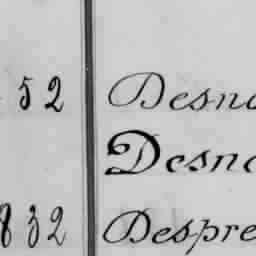 52 Desno
Desno
832 Despre